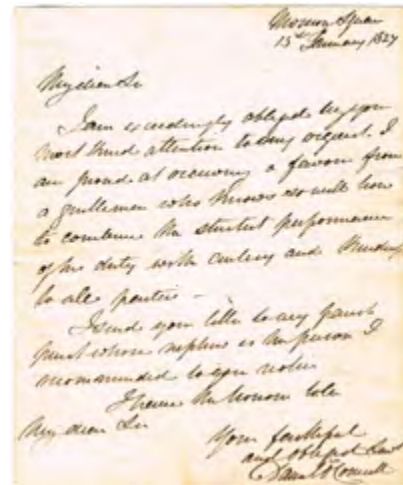 Merrion Square
13th January 1827
My dear Sir
I am exceedingly obliged by your
most kind attention to my request. I
am proud at receiving a favour from
a gentleman who knows so well how
to combine the strictest performance
of his duty with courtesy and kindness
to all parties –
I send you letter to my
whose nephew is the person I
recommended to your notice
I have the honour to be
My dear Sir
Your faithful
and obliged Servt
Daniel O'Connell